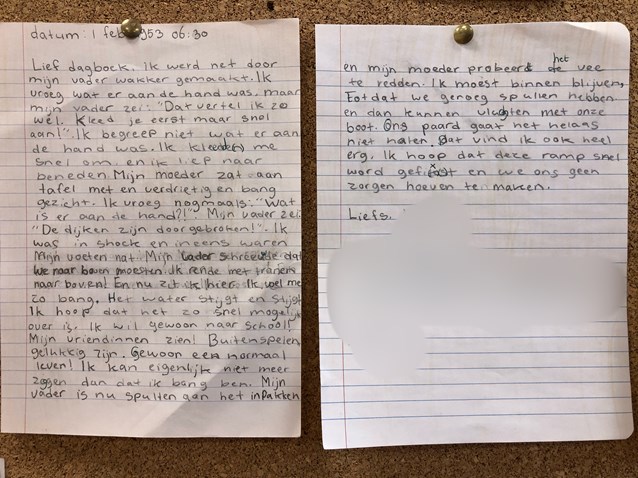 datum: 1 feb 1953 06:30
Lief dagboek, ik werd net door
mijn vader wakker gemaakt. Ik
vroeg wat er aan de hand was, maar
mijn vader zei: "Dat vertel ik zo
wel. Kleed je eerst maar snel
aan!". Ik begreep niet wat er aan
de hand was. Ik kleedde me
snel om en ik liep naar
beneden. Mijn moeder zat aan
tafel met en verdrietig en bang
gezicht. Ik vroeg nogmaals: "Wat
is er aan de hand?!" Mijn vader zei:
"De dijken zijn doorgebroken!". Ik
was in shock en ineens waren
Mijn voeten nat. Mijn vader schreeuwde dat
we naar boven moesten. Ik rende met tranen
naar boven! En nu zit ik hier. Ik voel me
zo bang. Het water stijgt en stijgt
Ik hoop dat het zo snel mogelijk
over is. Ik wil gewoon naar school!
Mijn vriendinnen zien! Buitenspelen,
gelukkig zijn. Gewoon een normaal
leven! Ik kan eigenlijk niet meer
zeggen dan dat ik bang ben. Mijn
vader is nu spullen aan het inpakken
en mijn moeder probeerd het vee
te redden. Ik moest binnen blijven,
totdat we genoeg spullen hebben
en dan kunnen vluchten met onze
boot. Ons paard gaat het helaas
niet halen. Dat vind ik ook heel
erg. Ik hoop dat deze ramp snel
word gefixst en we ons geen
zorgen hoeven te maken.
Liefs,